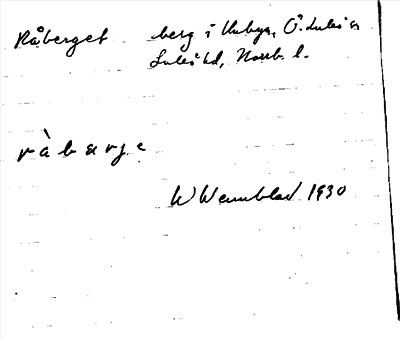 Råberget berg i Unbyn, Ö. Luleå sn
Luleå td, Norrb. l.
ràbærje
W Wennblad 1930